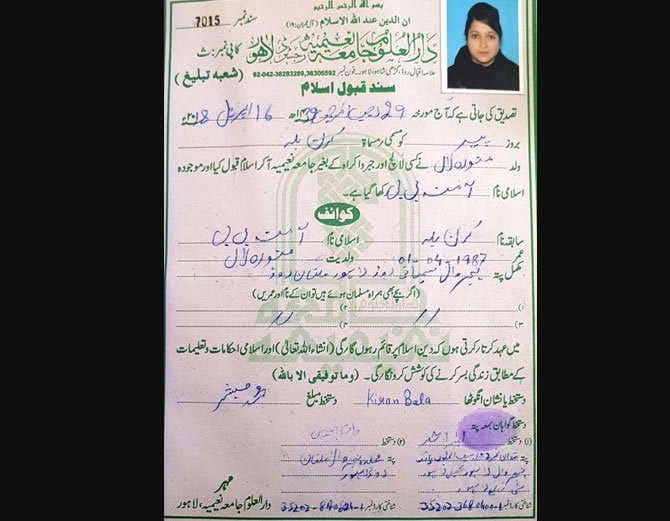 بسم اللہ الرحمن الرحیم
سند نمبر 7015
ان الدین عند اللہ الاسلام
دارالعلوم جامعہ نعیمیہ لاہور
کاپی نمبر: ث
علامہ اقبال روڈ، گڑھی شاہو، لاہور۔ فون نمبر 92-042-36293289,36306592
(شعبہ تبلیغ)
سند قبول اسلام
تصدیق کی جاتی ہے کہ آج مورخہ 29 رجب 1439ھ 16 اپریل 2018ء
بروز پیر کو مسمی/مسماۃ کرن بالہ
ولد منوہر لال نے کسی لالچ اور جبر واکراہ کے بغیر جامعہ نعیمیہ آکر اسلام قبول کیا اور موجودہ
اسلامی نام آمنہ بی بی رکھا گیا ہے۔
کوائف
سابقہ نام کرن بالہ اسلامی نام آمنہ بی بی
عمر 01-04-1987 ولدیت منوہر لال
مکمل پتہ روڈ لاہور ملتان روڈ
(اگر بچے بھی ہمراہ مسلمان ہوئے ہیں تو ان کے نام اور عمریں)
میں عہد کرتا/کرتی ہوں کہ دین اسلام پر قائم رہوں گا/گی (انشاء اللہ تعالیٰ) اور اسلامی احکامات و تعلیمات
کے مطابق زندگی بسر کرنے کی کوشش کروں گا/گی۔ (وما توفیقی الا باللہ)
دستخط یا نشان انگوٹھا Kiran Bala دستخط مبلغ
دستخط گواہان بمعہ پتہ
(۱) دستخط (۲) دستخط
پتہ
مہر
دارالعلوم جامعہ نعیمیہ، لاہور
شناختی کارڈ نمبر شناختی کارڈ نمبر